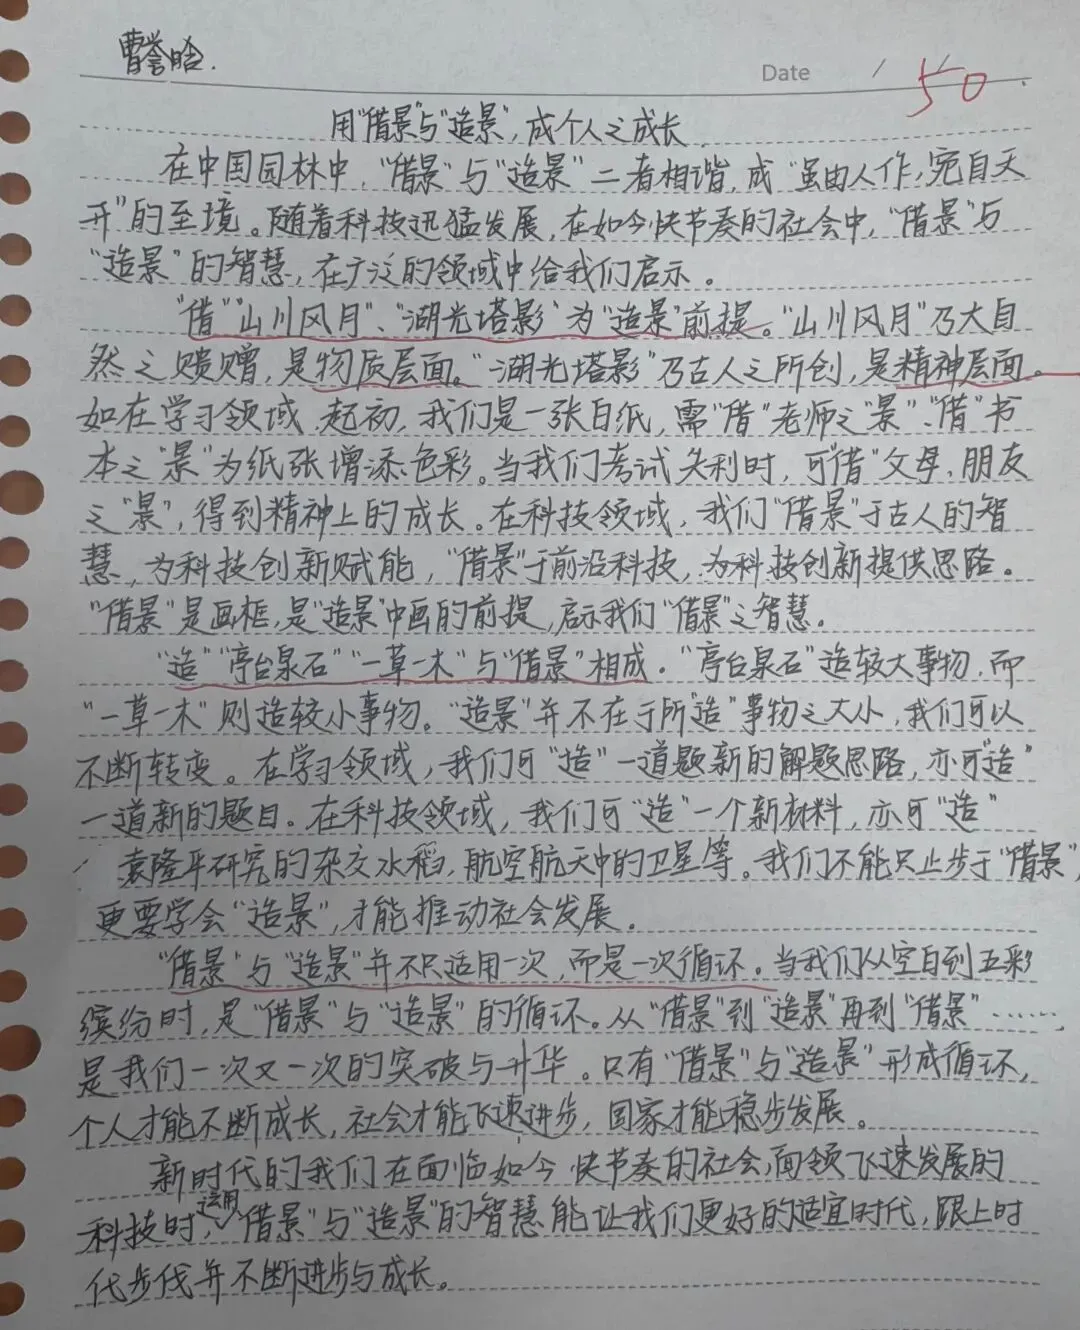 曹誉晗.
Date / /
50
用"借景"与"造景",成个人之成长
在中国园林中,"借景"与"造景"二者相谐,成"虽由人作,宛自天
开"的至境。随着科技迅猛发展,在如今快节奏的社会中,"借景"与
"造景"的智慧,在广泛的领域中给我们启示。
"借""山川风月"、"湖光塔影"为"造景"前提。"山川风月"乃大自
然之赐赠,是物质层面。"湖光塔影"乃古人之所创,是精神层面。
如在学习领域,起初,我们是一张白纸,需"借"老师之"景"、"借"书
本之"景"为纸张增添色彩。当我们考试失利时,可"借"父母、朋友
之"景",得到精神上的成长。在科技领域,我们"借景"于古人的智
慧,为科技创新赋能,"借景"于前沿科技,为科技创新提供思路。
"借景"是画框,是"造景"中画的前提,启示我们"借景"之智慧。
"造""亭台泉石""一草一木"与"借景"相成。"亭台泉石"造较大事物,而
"一草一木"则造较小事物。"造景"并不在于所"造"事物之大小,我们可以
不断转变。在学习领域,我们可"造"一道题新的解题思路,亦可"造"
一道新的题目。在科技领域,我们可"造"一个新材料,亦可"造"
袁隆平研究的杂交水稻,航空航天中的卫星等。我们不能只止步于"借景",
更要学会"造景",才能推动社会发展。
"借景"与"造景"并不只适用一次,而是一次循环。当我们从空白到五彩
缤纷时,是"借景"与"造景"的循环。从"借景"到"造景"再到"借景"……,
是我们一次又一次的突破与升华。只有"借景"与"造景"形成循环,
个人才能不断成长,社会才能飞速进步,国家才能稳步发展。
新时代的我们在面临如今快节奏的社会,面领飞速发展的
科技时,运用"借景"与"造景"的智慧能让我们更好的适宜时代,跟上时
代步伐并不断进步与成长。